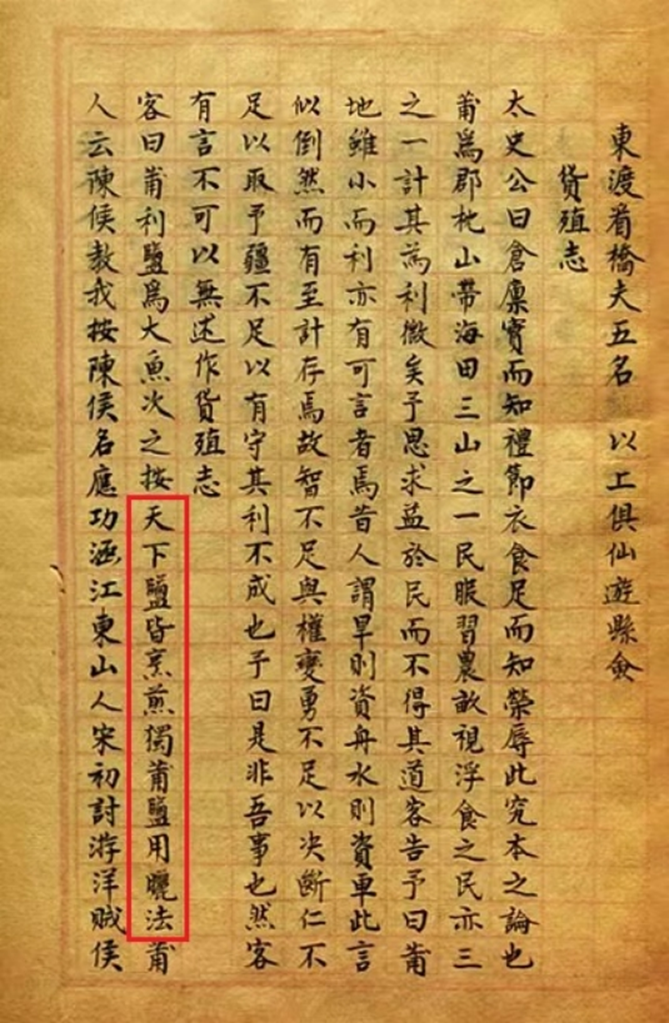 東渡看橋夫五名　以工俱仙遊縣僉
貨殖志
太史公曰倉廩實而知禮節衣食足而知榮辱此究本之論也
莆爲郡枕山帶海田三山之一民服習農畝視浮食之民亦三
之一計其為利微矣予思求益於民而不得其道客告予曰莆
地雖小而利亦有可言者焉昔人謂旱則資舟水則資車此言
似倒然而有至計存焉故智不足與權變勇不足以决斷仁不
足以取予彊不足以有守其利不成也予曰是非吾事也然客
有言不可以無述作貨殖志
客曰莆利鹽爲大魚次之按天下鹽皆烹煎獨莆鹽用曬法莆
人云陳侯教我按陳侯名應功涵江東山人宋初討游洋賊侯